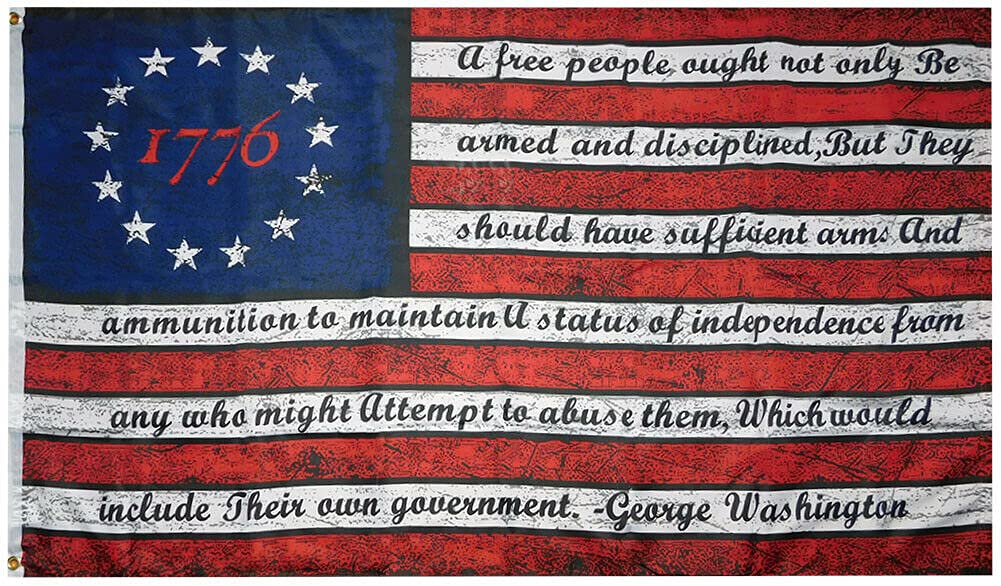 1776
A free people ought not only Be
armed and disciplined,But They
should have suffivient arms And
ammunition to maintain A status of independence from
any who might Attempt to abuse them, Which would
include Their own government. -George Washington